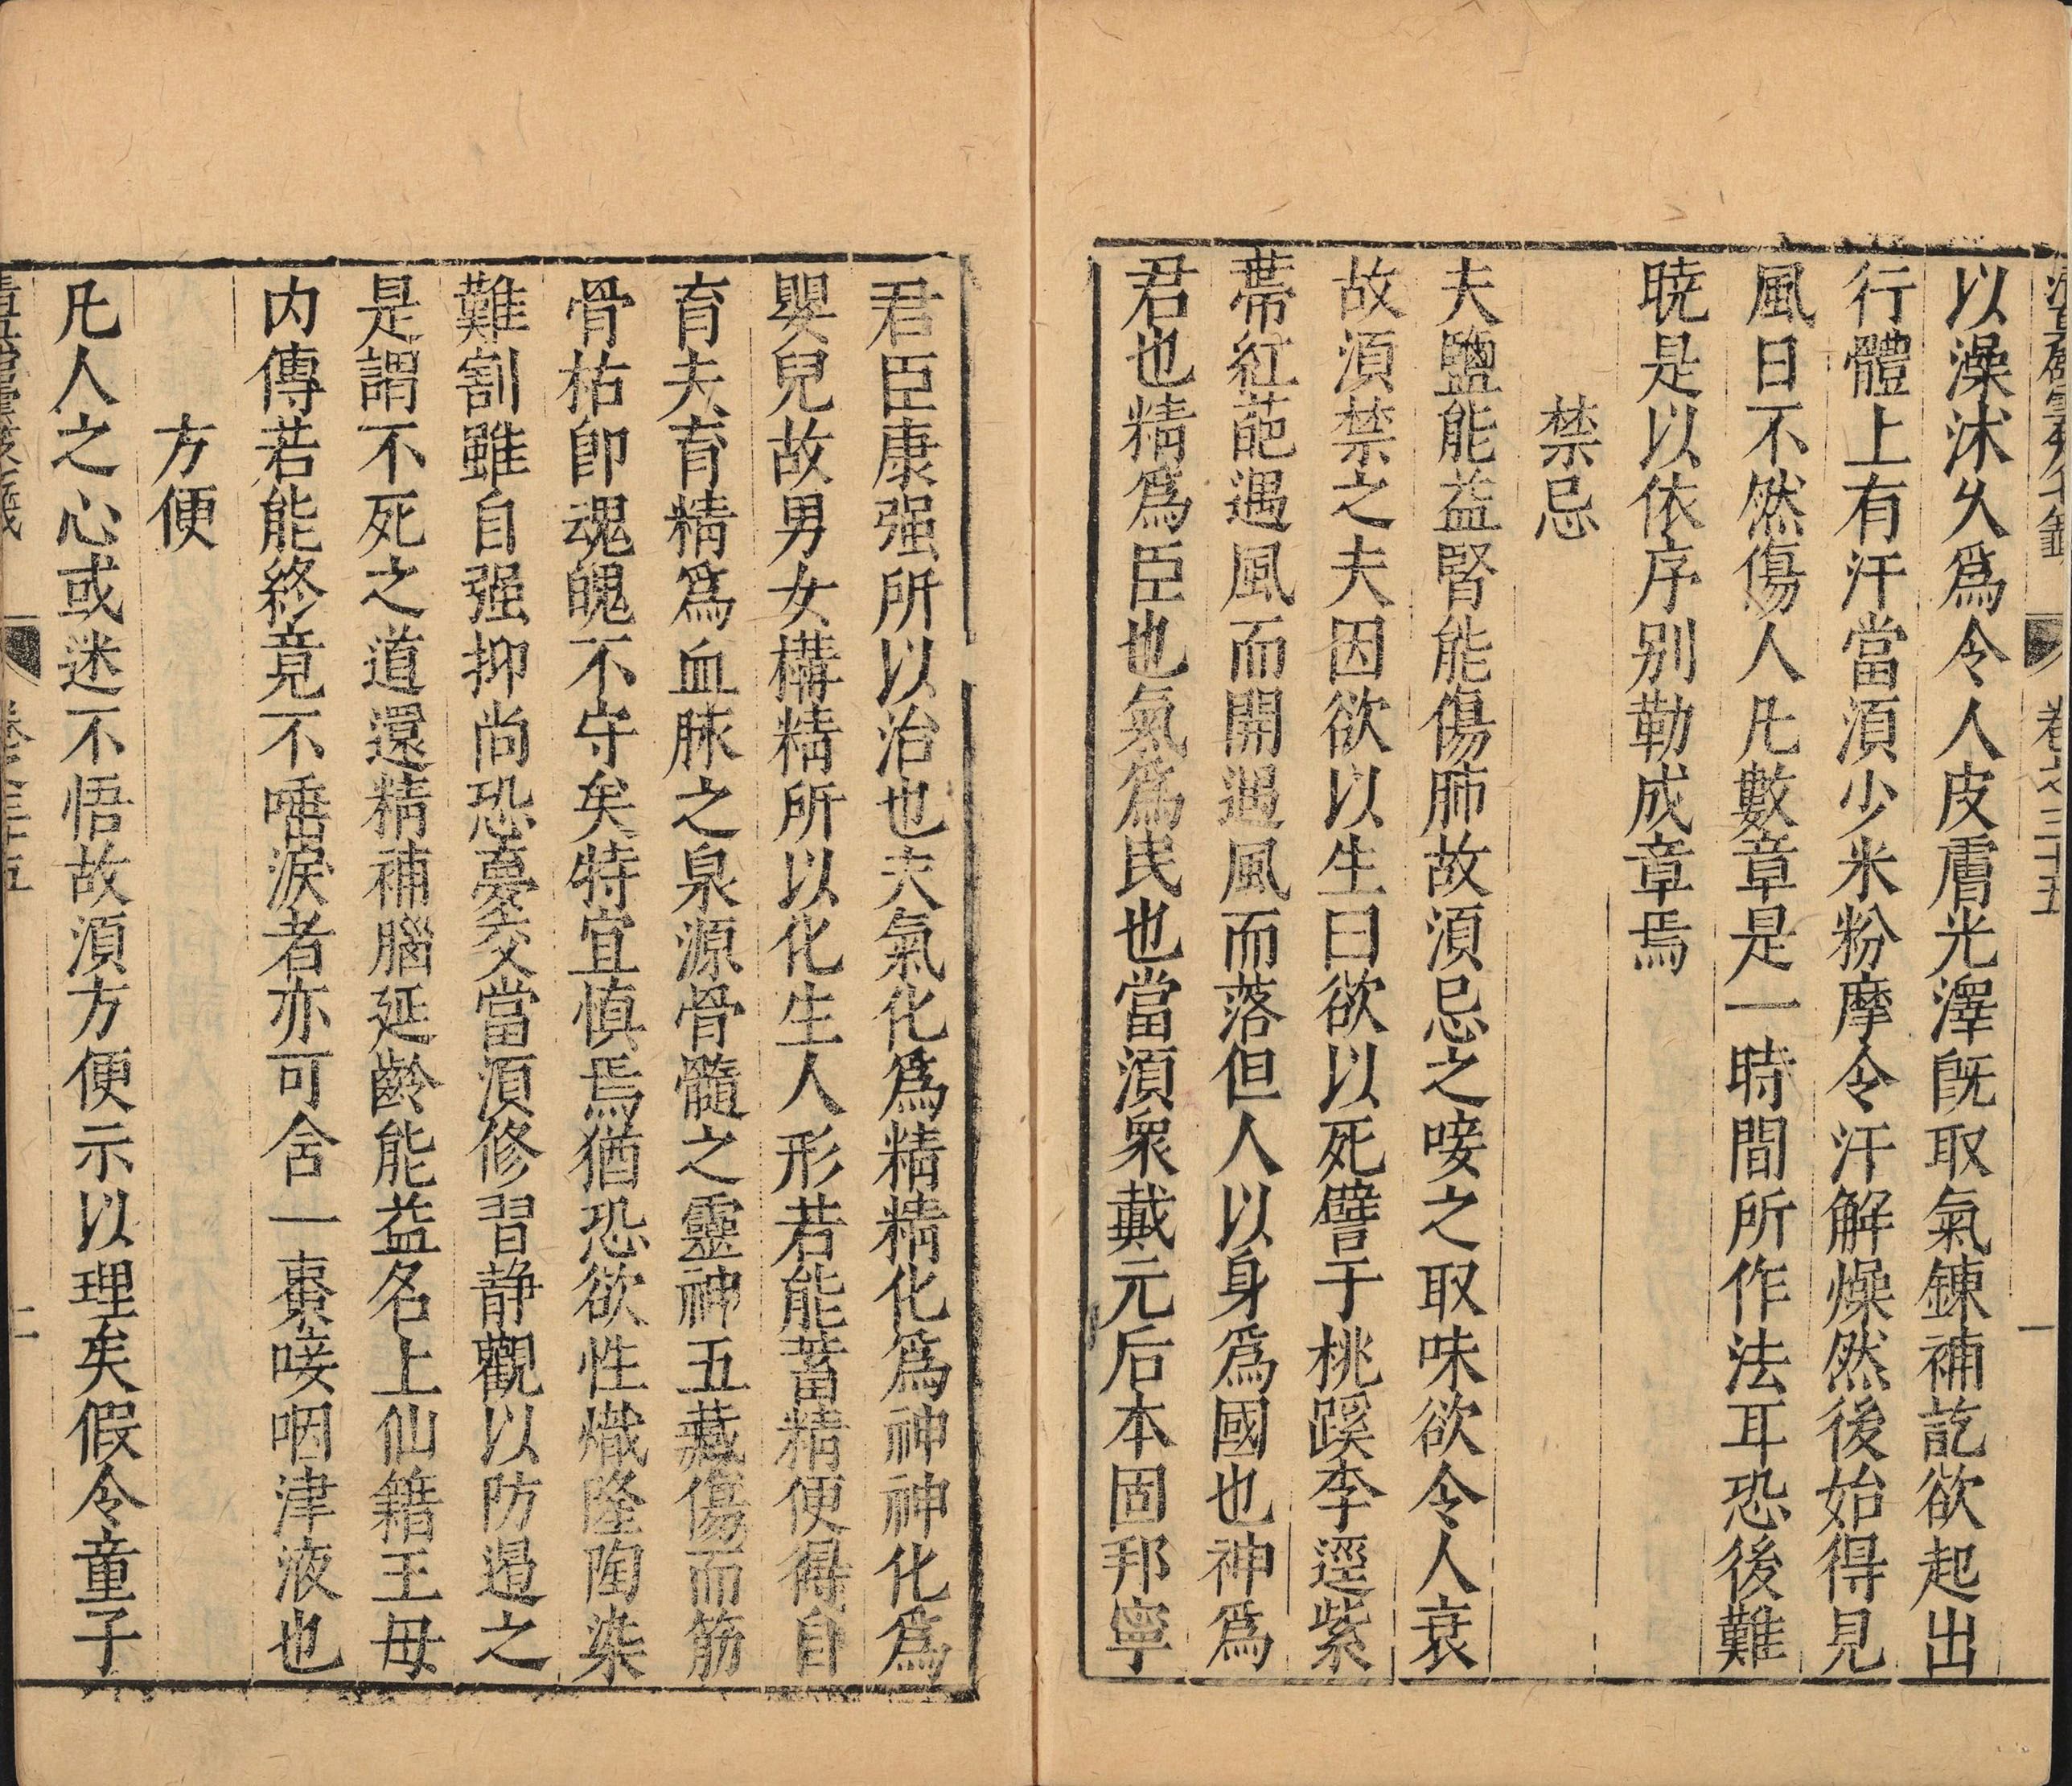 卷之三十五
一
以澡沐久爲令人皮膚光澤旣取氣鍊補訖欲起出
行體上有汗當須少米粉摩令汗解燥然後始得見
風日不然傷人凡數章是一時間所作法耳恐後難
曉是以依序别勒成章焉
禁忌
夫鹽能益腎能傷肺故須忌之唼之取味欲令人衰
故須禁之夫因欲以生曰欲以死譬于桃蹊李逕紫
蔕紅葩遇風而開遇風而落但人以身爲國也神爲
君也精爲臣也氣爲民也當須衆戴元后本固邦寧
君臣康强所以治也夫氣化爲精精化爲神神化爲
嬰兒故男女構精所以化生人形若能蓄精便得自
育夫育精爲血脉之泉源骨髓之靈神五藏傷而筋
骨枯卽魂魄不守矣特宜慎焉猶恐欲性熾隆陶染
難割雖自强抑尚恐夢交當須修習静觀以防遏之
是謂不死之道還精補腦延齡能益名上仙籍王母
内傳若能終竟不唾涙者亦可含一棗唼咽津液也
方便
凡人之心或迷不悟故須方便示以理矣假令童子
卷之三十五
二